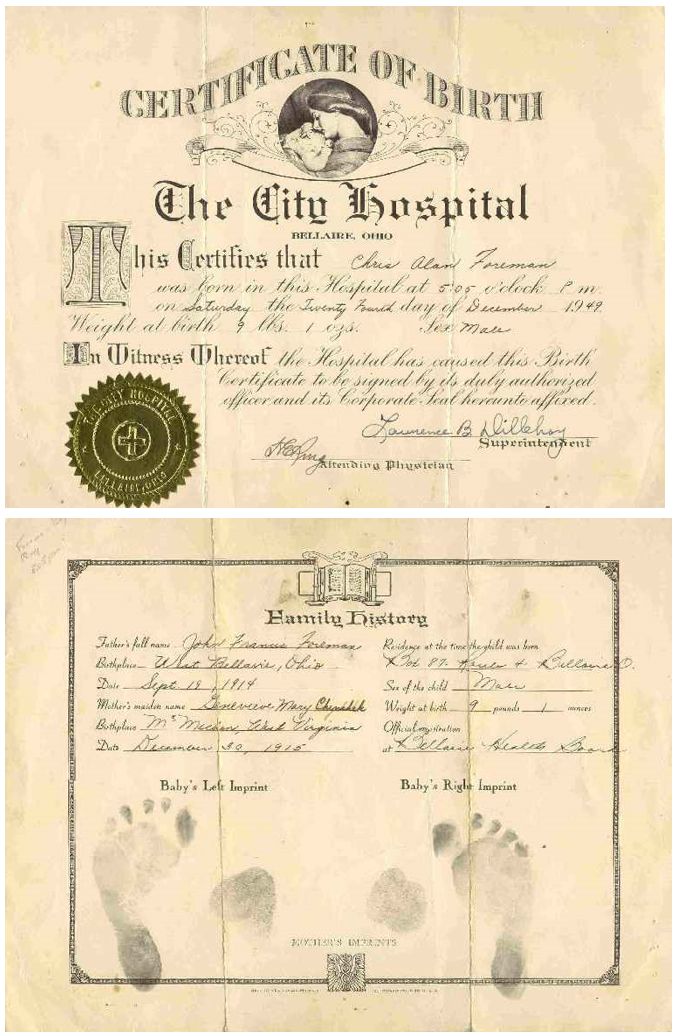 CERTIFICATE OF BIRTH
The City Hospital
BELLAIRE, OHIO
This Certifies that Chris Alan Foreman
was born in this Hospital at 5:05 o'clock P.m.
on Saturday the Twenty Fourth day of December 1949
Weight at birth 9 lbs. 1 ozs. Sex Male
In Witness Whereof the Hospital has caused this Birth
Certificate to be signed by its duly authorized
officer and its Corporate Seal hereunto affixed.
THE CITY HOSPITAL
BELLAIRE, OHIO
Lawrence B. Dillehay
Superintendent
Attending Physician
Family History
Father's full name John Francis Foreman
Birthplace West Bellaire, Ohio
Date Sept. 19, 1914
Mother's maiden name Genevieve Mary
Birthplace McMechen, West Virginia
Date December 30, 1915
Residence at the time the child was born
Lot 87. Bellaire O.
Sex of the child Male
Weight at birth 9 pounds 1 ounces
Official registration
at Bellaire Health Board
Baby's Left Imprint
Baby's Right Imprint
MOTHER'S IMPRINTS